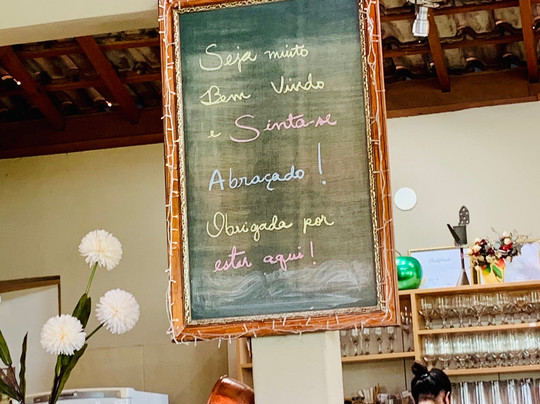 Seja muito
Bem Vindo
e Sinta-se
Abraçado!
Obrigada por
estar aqui!